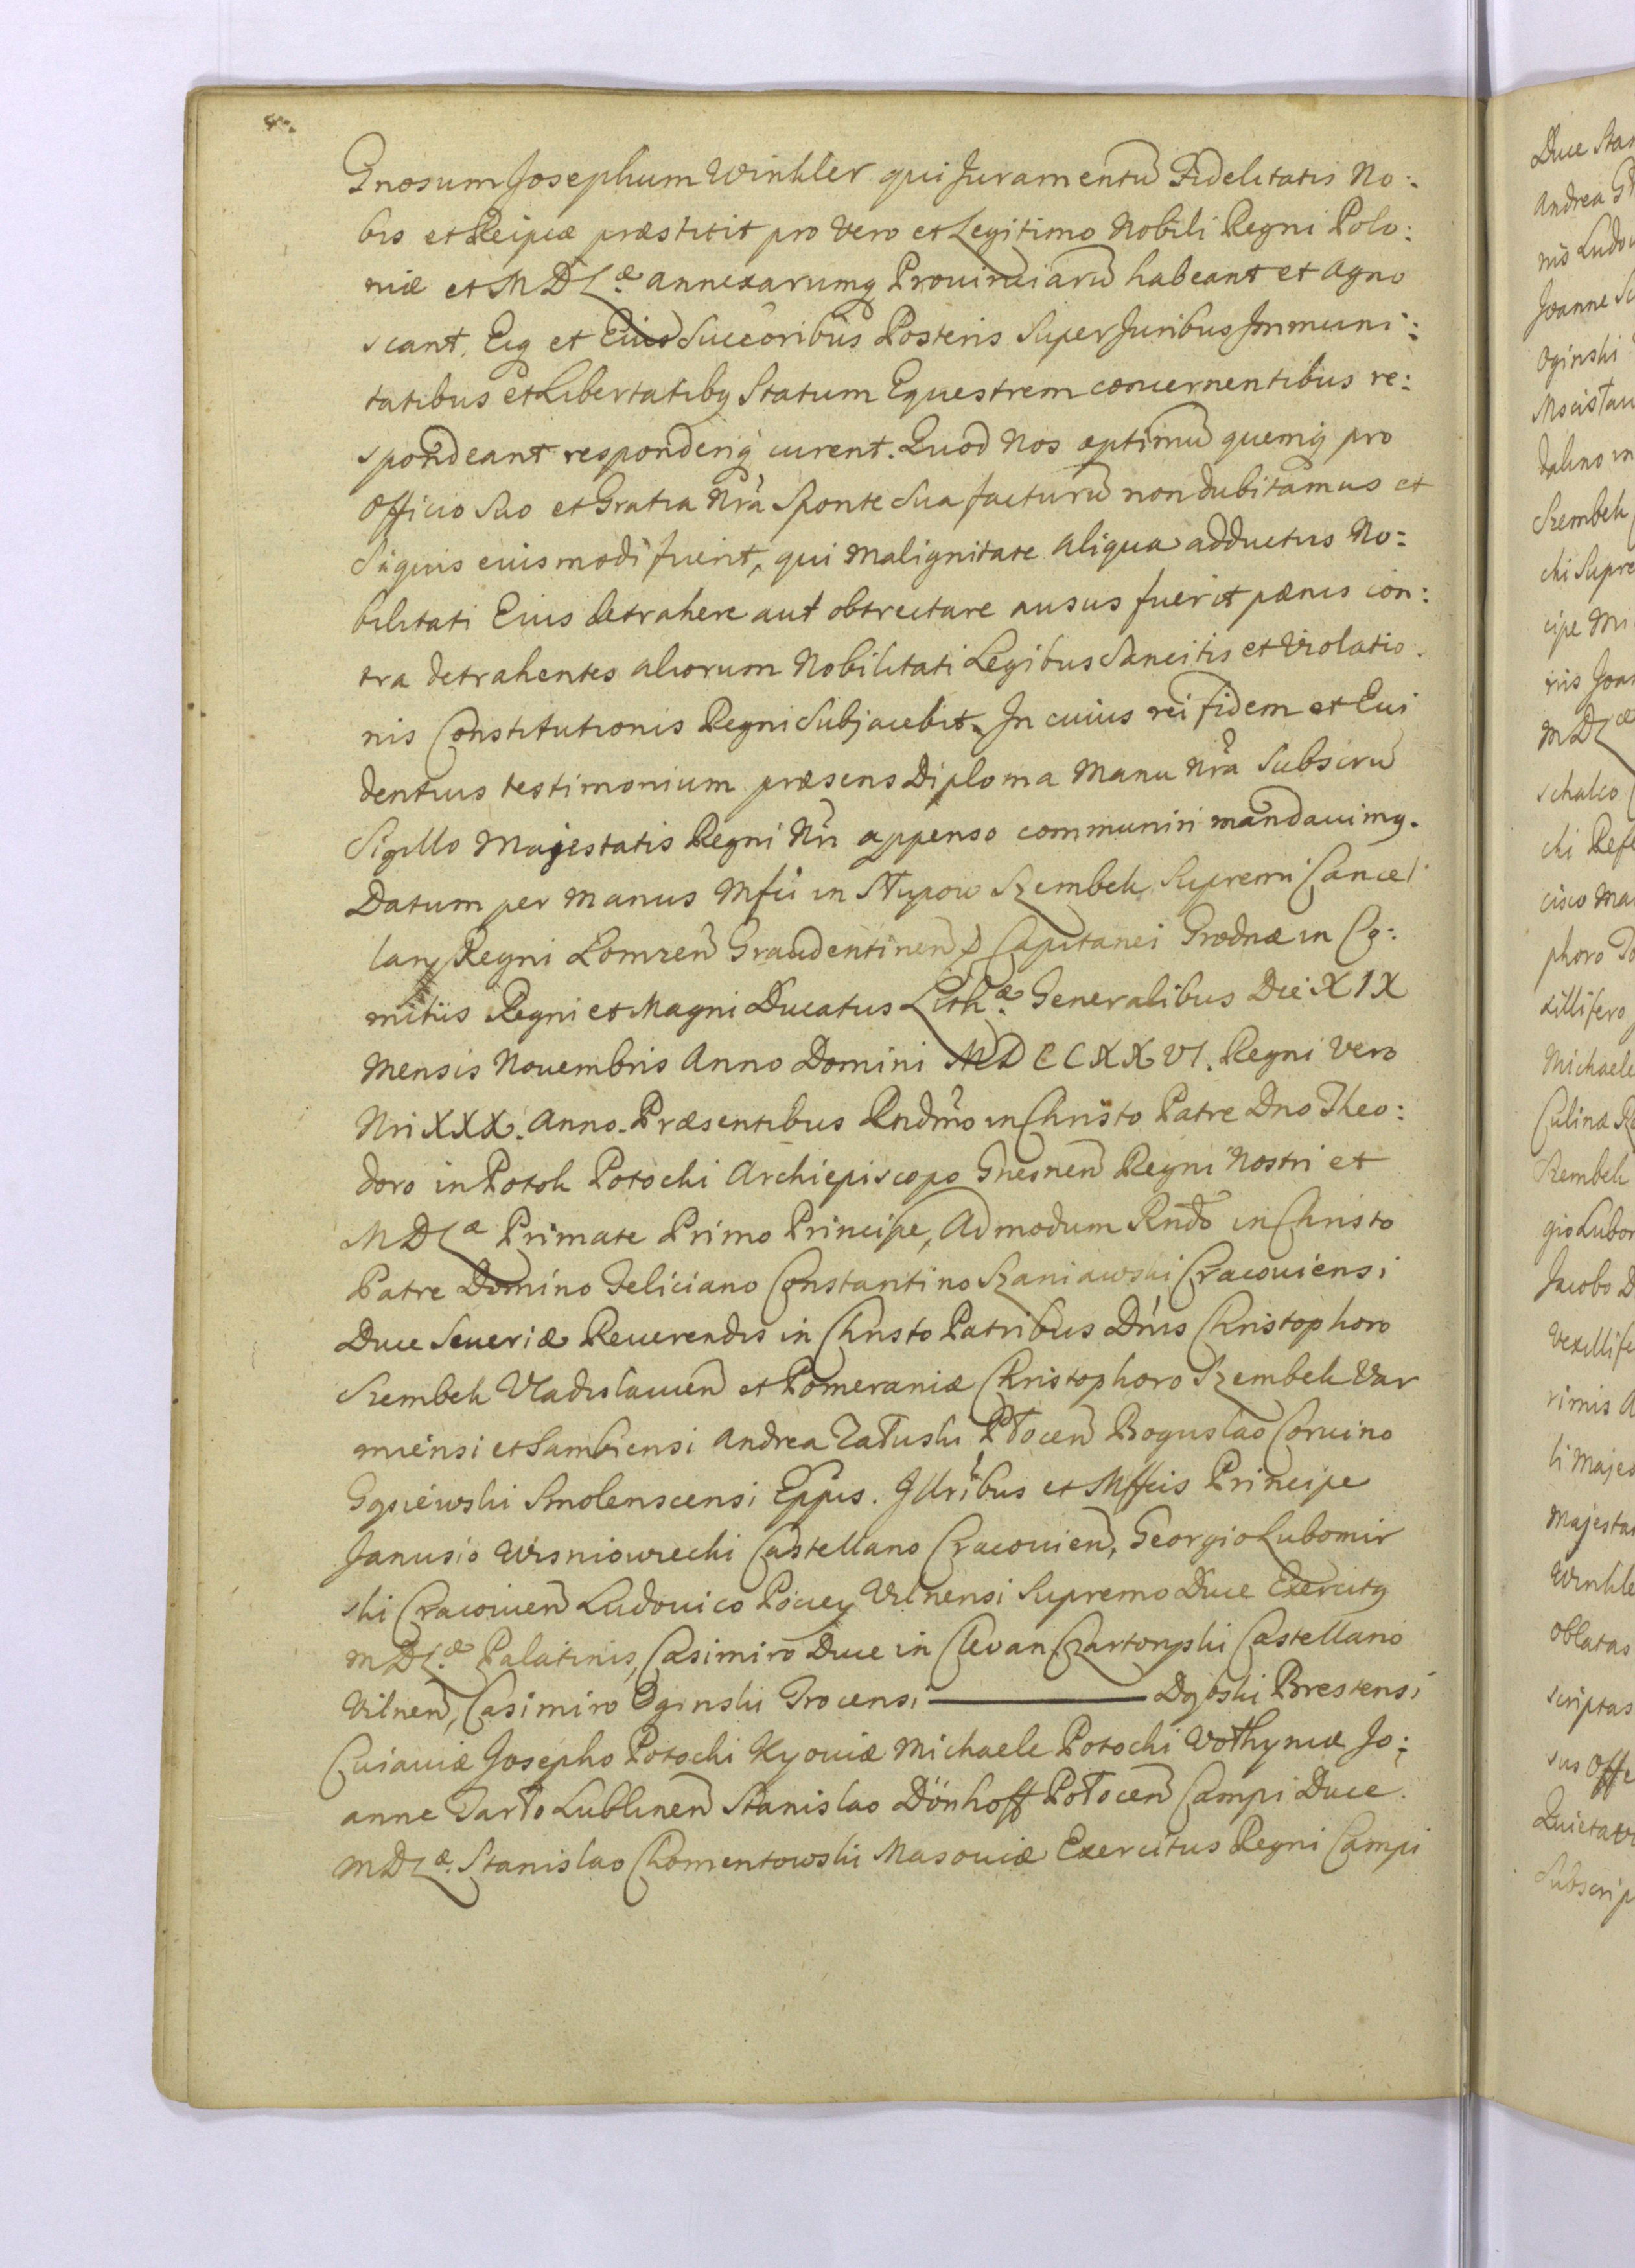 Gnosum Josephum Winkler qui Juramentũ Fidelitatis No:
bis et Reipcæ præstitit pro vero et Legitimo Nobili Regni Polo:
niæ et M D Læ annexarumq Prouinciarũ habeant et agno
scant, Eiq et Eius Succoribus Posteris Super Juribus Immuni:
tatibus et Libertatibq Statum Equestrem concernentibus re:
spondeant responderiq curent. Quod Nos optimũ quemq pro
Officio Suo et Gratia Nrã Sponte Sua facturũ non dubitamus et
Siquis eiusmodi fuerit, qui malignitate aliqua adductus No:
bilitati Eius detrahere aut obtrectare ausus fuerit pænis con:
tra detrahentes aliorum Nobilitati Legibus Sancitis et Violatio.
nis Constitutionis Regni Subjacebit. In cuius rei fidem et Eui
dentius testimonium præsens Diploma Manu Nrã Subscrũ
Sigillo Majestatis Regni Nri appenso communiri mandauimq.
Datum per manus Mfci in Słupow Szembek Supremi Cancel
larij Regni Lomzen Graudentinen Capitanei Grodnæ in Co:
mitiis Regni et Magni Ducatus Lithæ Generalibus Die XIX
Mensis Nouembris Anno Domini MDCCXXVI. Regni vero
Nri XXX. Anno. Præsentibus Rndmo in Christo Patre Dno Theo:
doro in Potok Potocki Archiepiscopo Gnesnen Regni Nostri et
M D Læ Primate Primo Principe, Admodum Rndo in Christo
Patre Domino Feliciano Constantino Szaniawski Cracouiensi
Duce Seueriæ Reuerendis in Christo Patribus Dnis Christophoro
Szembek Vladislauien et Pomeraniæ Christophoro Szembek Var
miensi et Sambiensi Andrea Załuski Płocen Boguslao Coruino
Gąsiewski Smolenscensi Eppis. Illribus et Mffcis Principe
Janusio Wisniowiecki Castellano Cracouien, Georgio Lubomir
ski Cracouien Ludouico Pociey Vilnensi Supremo Duce Exercitq
M D Læ Palatinis, Casimiro Duce in Clevan Czartoryski Castellano
Vilnen, Casimiro Oginski Trocensi ——— Dąbski Brestensi
Cuiauiæ Josepho Potocki Kyouiæ Michaele Potocki Wołhyniæ Jo:
anne Tarło Lublinen Stanislao Dönhoff Połocen Campi Duce
M D Læ. Stanislao Chomentowski Masouiæ Exercitus Regni Campi
Duce
Andrea
nis
Joanne
Oginski
Mscisłau
dalino in
Szembek
cki Supre
cipe Mi
riis Joan
M D Læ
schalco
cki Refe
cisco Ma
phoro
xillifero
Michaele
Culinæ
Szembek
gio Lubom
Jacobo D
Vexillife
rimis
li Majes
Majestat
Winkle
Oblatas
scriptas
sus Offe
Quietau
Subscrip